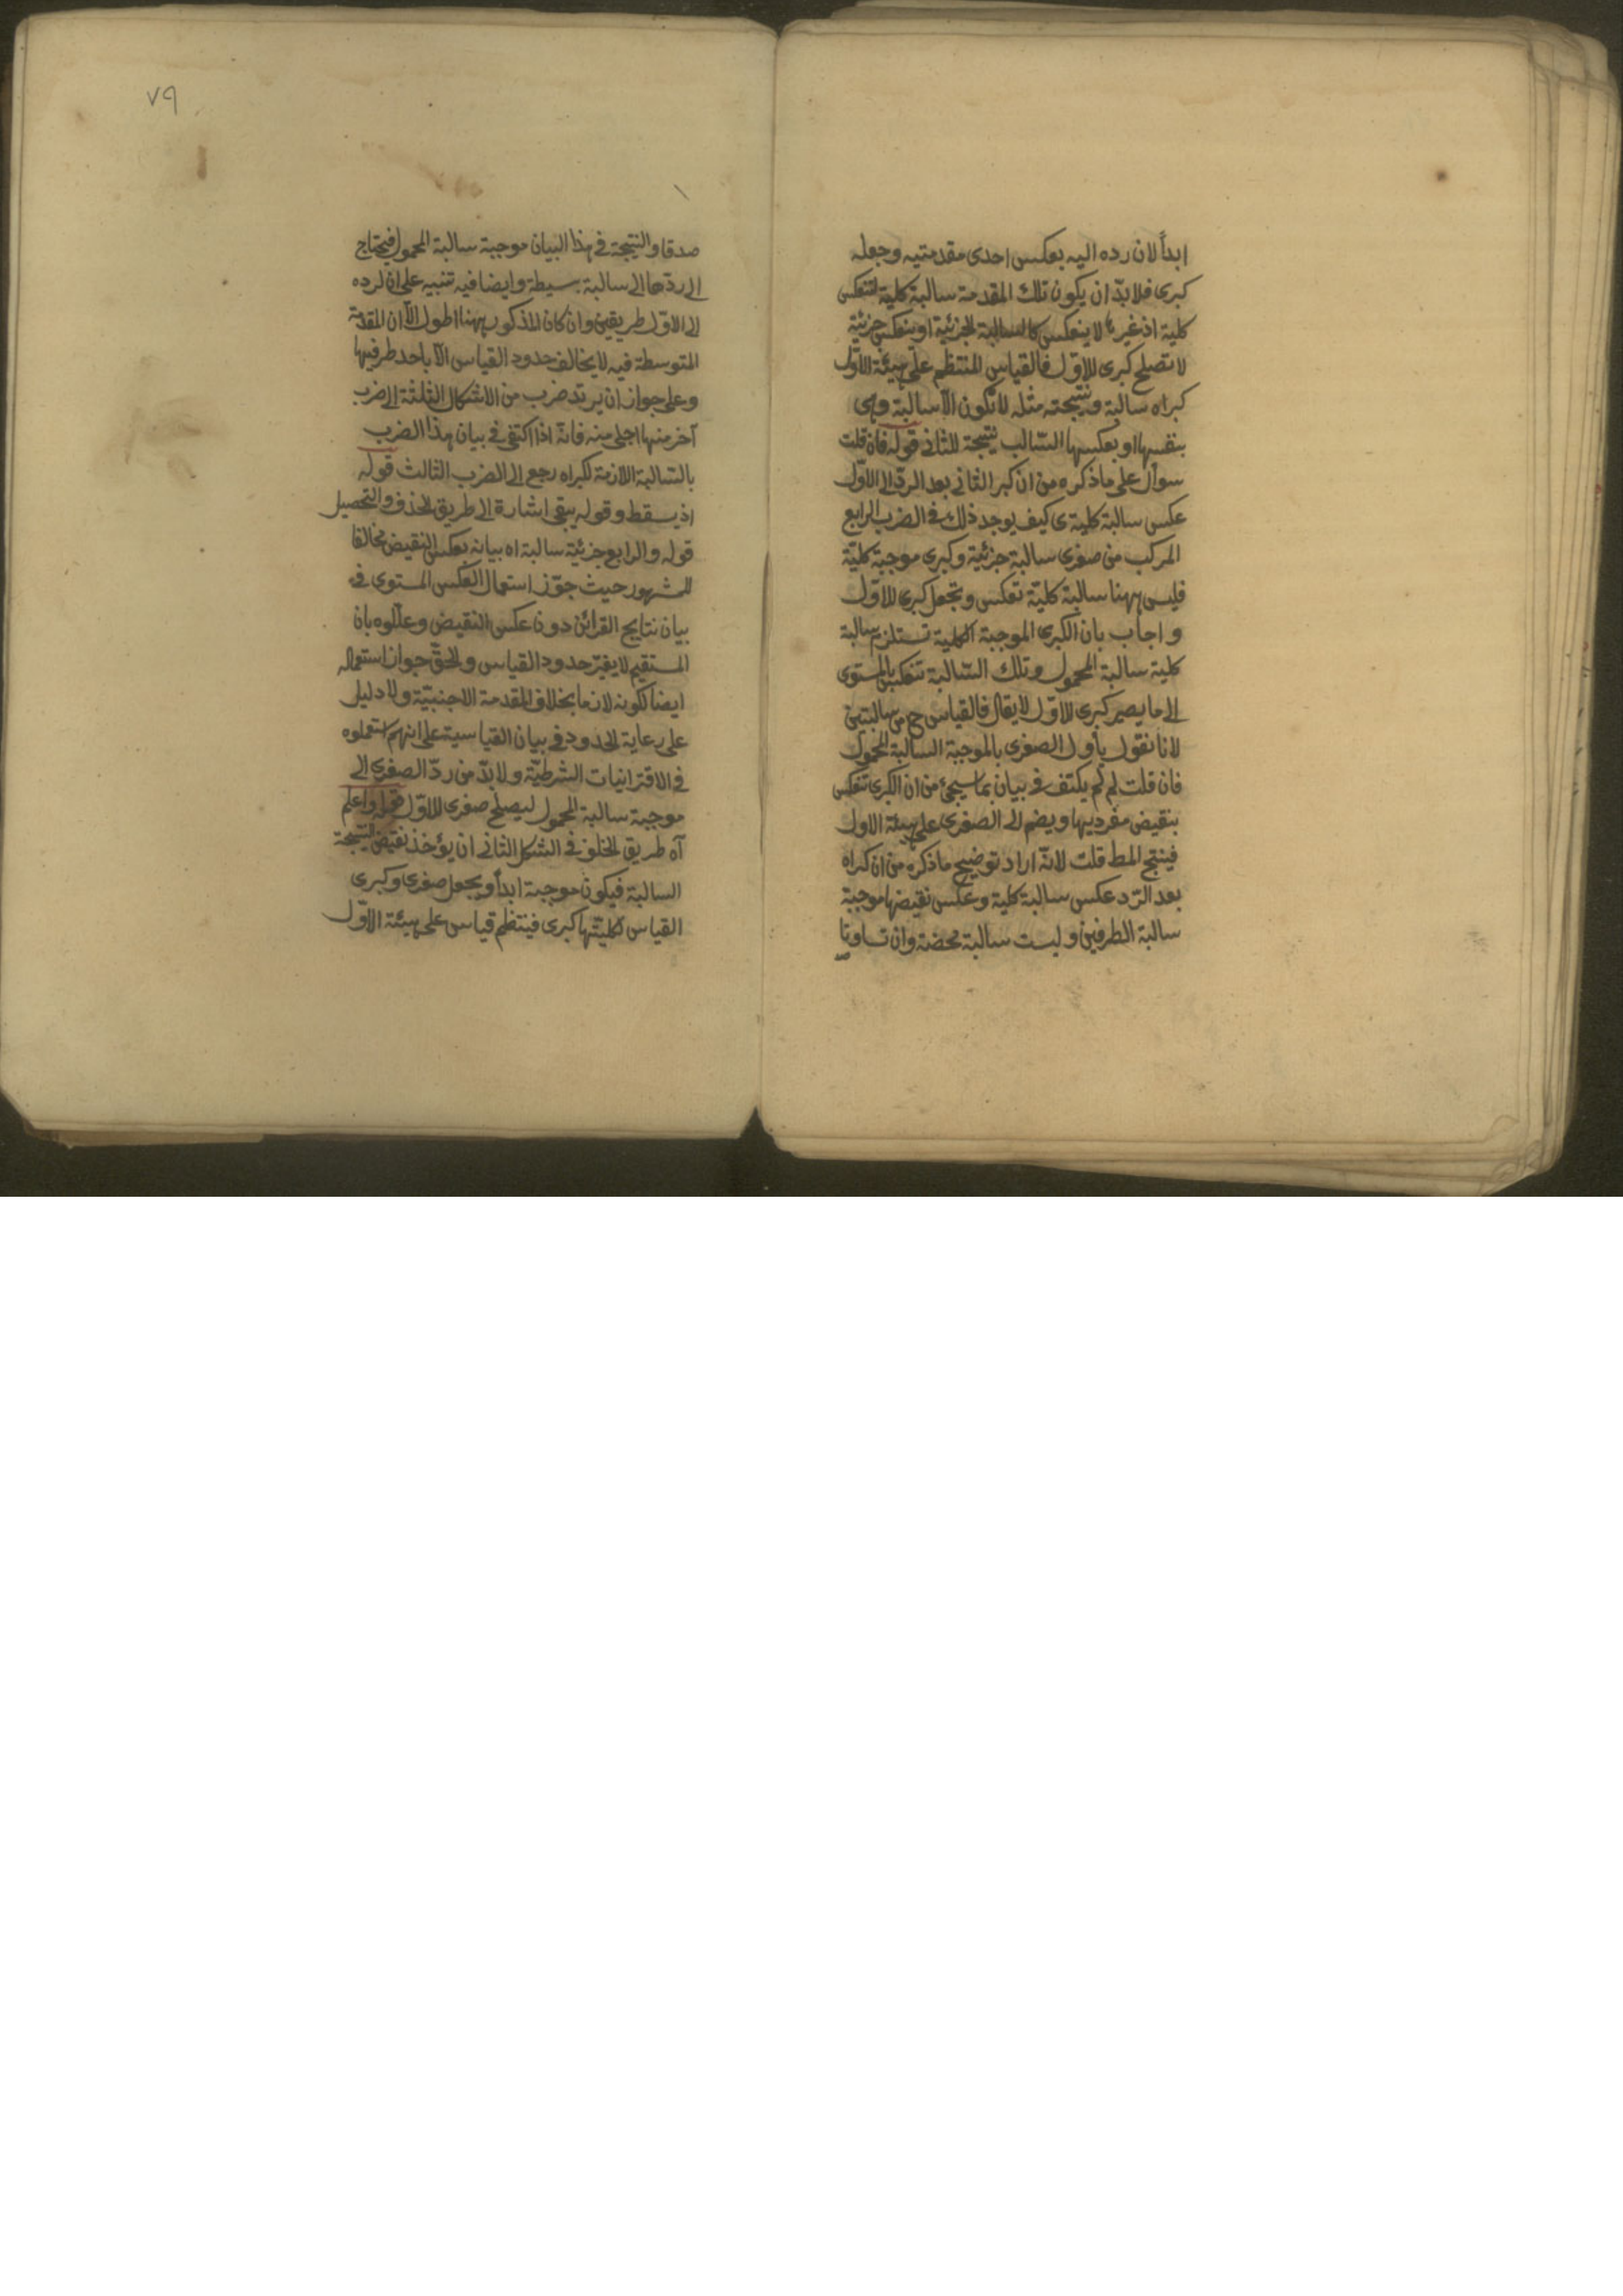 ابدأ لان رده اليه بعكس احدى مقدمتيه وجعله
كبرى فلا بدّ ان يكون تلك المقدمة سالبة كلية لتنعكس
كلية اذ غيرها لا ينعكس كالسالبة الجزئية او ينعكس جزئية
لا تصلح كبرى للاوّل فالقياس المنتظم على هيئة الاوّل
كبراه سالبة ونتيجته مثله لا تكون الّا سالبة وهى
بنفسها او بعكسها السّالب نتيجة للثانى قوله فان قلت
سوأل على ما ذكره من ان كبر الثانى بعد الردّ الى الاوّل
عكس سالبة كلية ى كيف يوجد ذلك فى الضرب الرابع
المركب من صغرى سالبة جزئية وكبرى موجبة كليّة
فليس ههنا سالبة كليّة تعكس وتجعل كبرى للاوّل
و اجاب بان الكبرى الموجبة الكلية تستلزم سالبة
كلية سالبة المحمول وتلك السّالبة تنعكس بالمستوى
الى ما يصير كبرى للاوّل لا يقال فالقياس ح من سالبتين
لانا نقول يأول الصغرى بالموجبة السالبة المحمول
فان قلت لم لم يكتف فى بيان بما سيجئ من ان الكبرى تنعكس
بنقيض مفرديها ويضم الى الصغرى على هيئة الاول
فينتج المط قلت لانّه اراد توضيح ما ذكره من ان كبراه
بعد الرّد عكس سالبة كلية وعكس نقيضها موجبة
سالبة الطرفين وليست سالبة محضة وان تساوتا
٧٩
صدقا والنتيجة فى هذا البيان موجبة سالبة المحمول فيحتاج
الى ردّها الى سالبة بسيطة وايضا فيه تنبيه على ان لرده
الى الاوّل طريقين وان كان المذكور ههنا اطول الّا ان المقدمة
المتوسطة فيه لا يخالف حدود القياس الّا باحد طرفيها
وعلى جواز ان يرتد ضرب من الاشكال الثلثة الى ضرب
آخر منها اجلى منه فانّه اذا اكتفى فى بيان هذا الضرب
بالسّالبة اللازمة لكبراه رجع الى الضرب الثالث قوله
اذ يسقط وقوله يبقى اشارة الى طريق الحذف والتحصيل
قوله والرابع جزئية سالبة اه بيانه بعكس النقيض مخالفا
للمشهور حيث جوّز استعمال العكس المستوى فى
بيان نتايج القرائن دون عكس النقيض وعلّلوه بان
المستقيم لا يغيّر حدود القياس والحقّ جواز استعماله
ايضا لكونه لازما بخلاف المقدمة الاجنبيّة ولا دليل
على رعاية الحدود فى بيان القياسية على انهم استعملوه
فى الاقترانيات الشرطيّة ولا بدّ من ردّ الصغرى الى
موجبة سالبة المحمول ليصلح صغرى للاوّل قوله واعلم
آه طريق الخلف فى الشكل الثانى ان يؤخذ نقيض النتيجة
السالبة فيكون موجبة ابدأ ويجعل صغرى وكبرى
القياس لكليتها كبرى فينتظم قياس على هيئة الاوّل